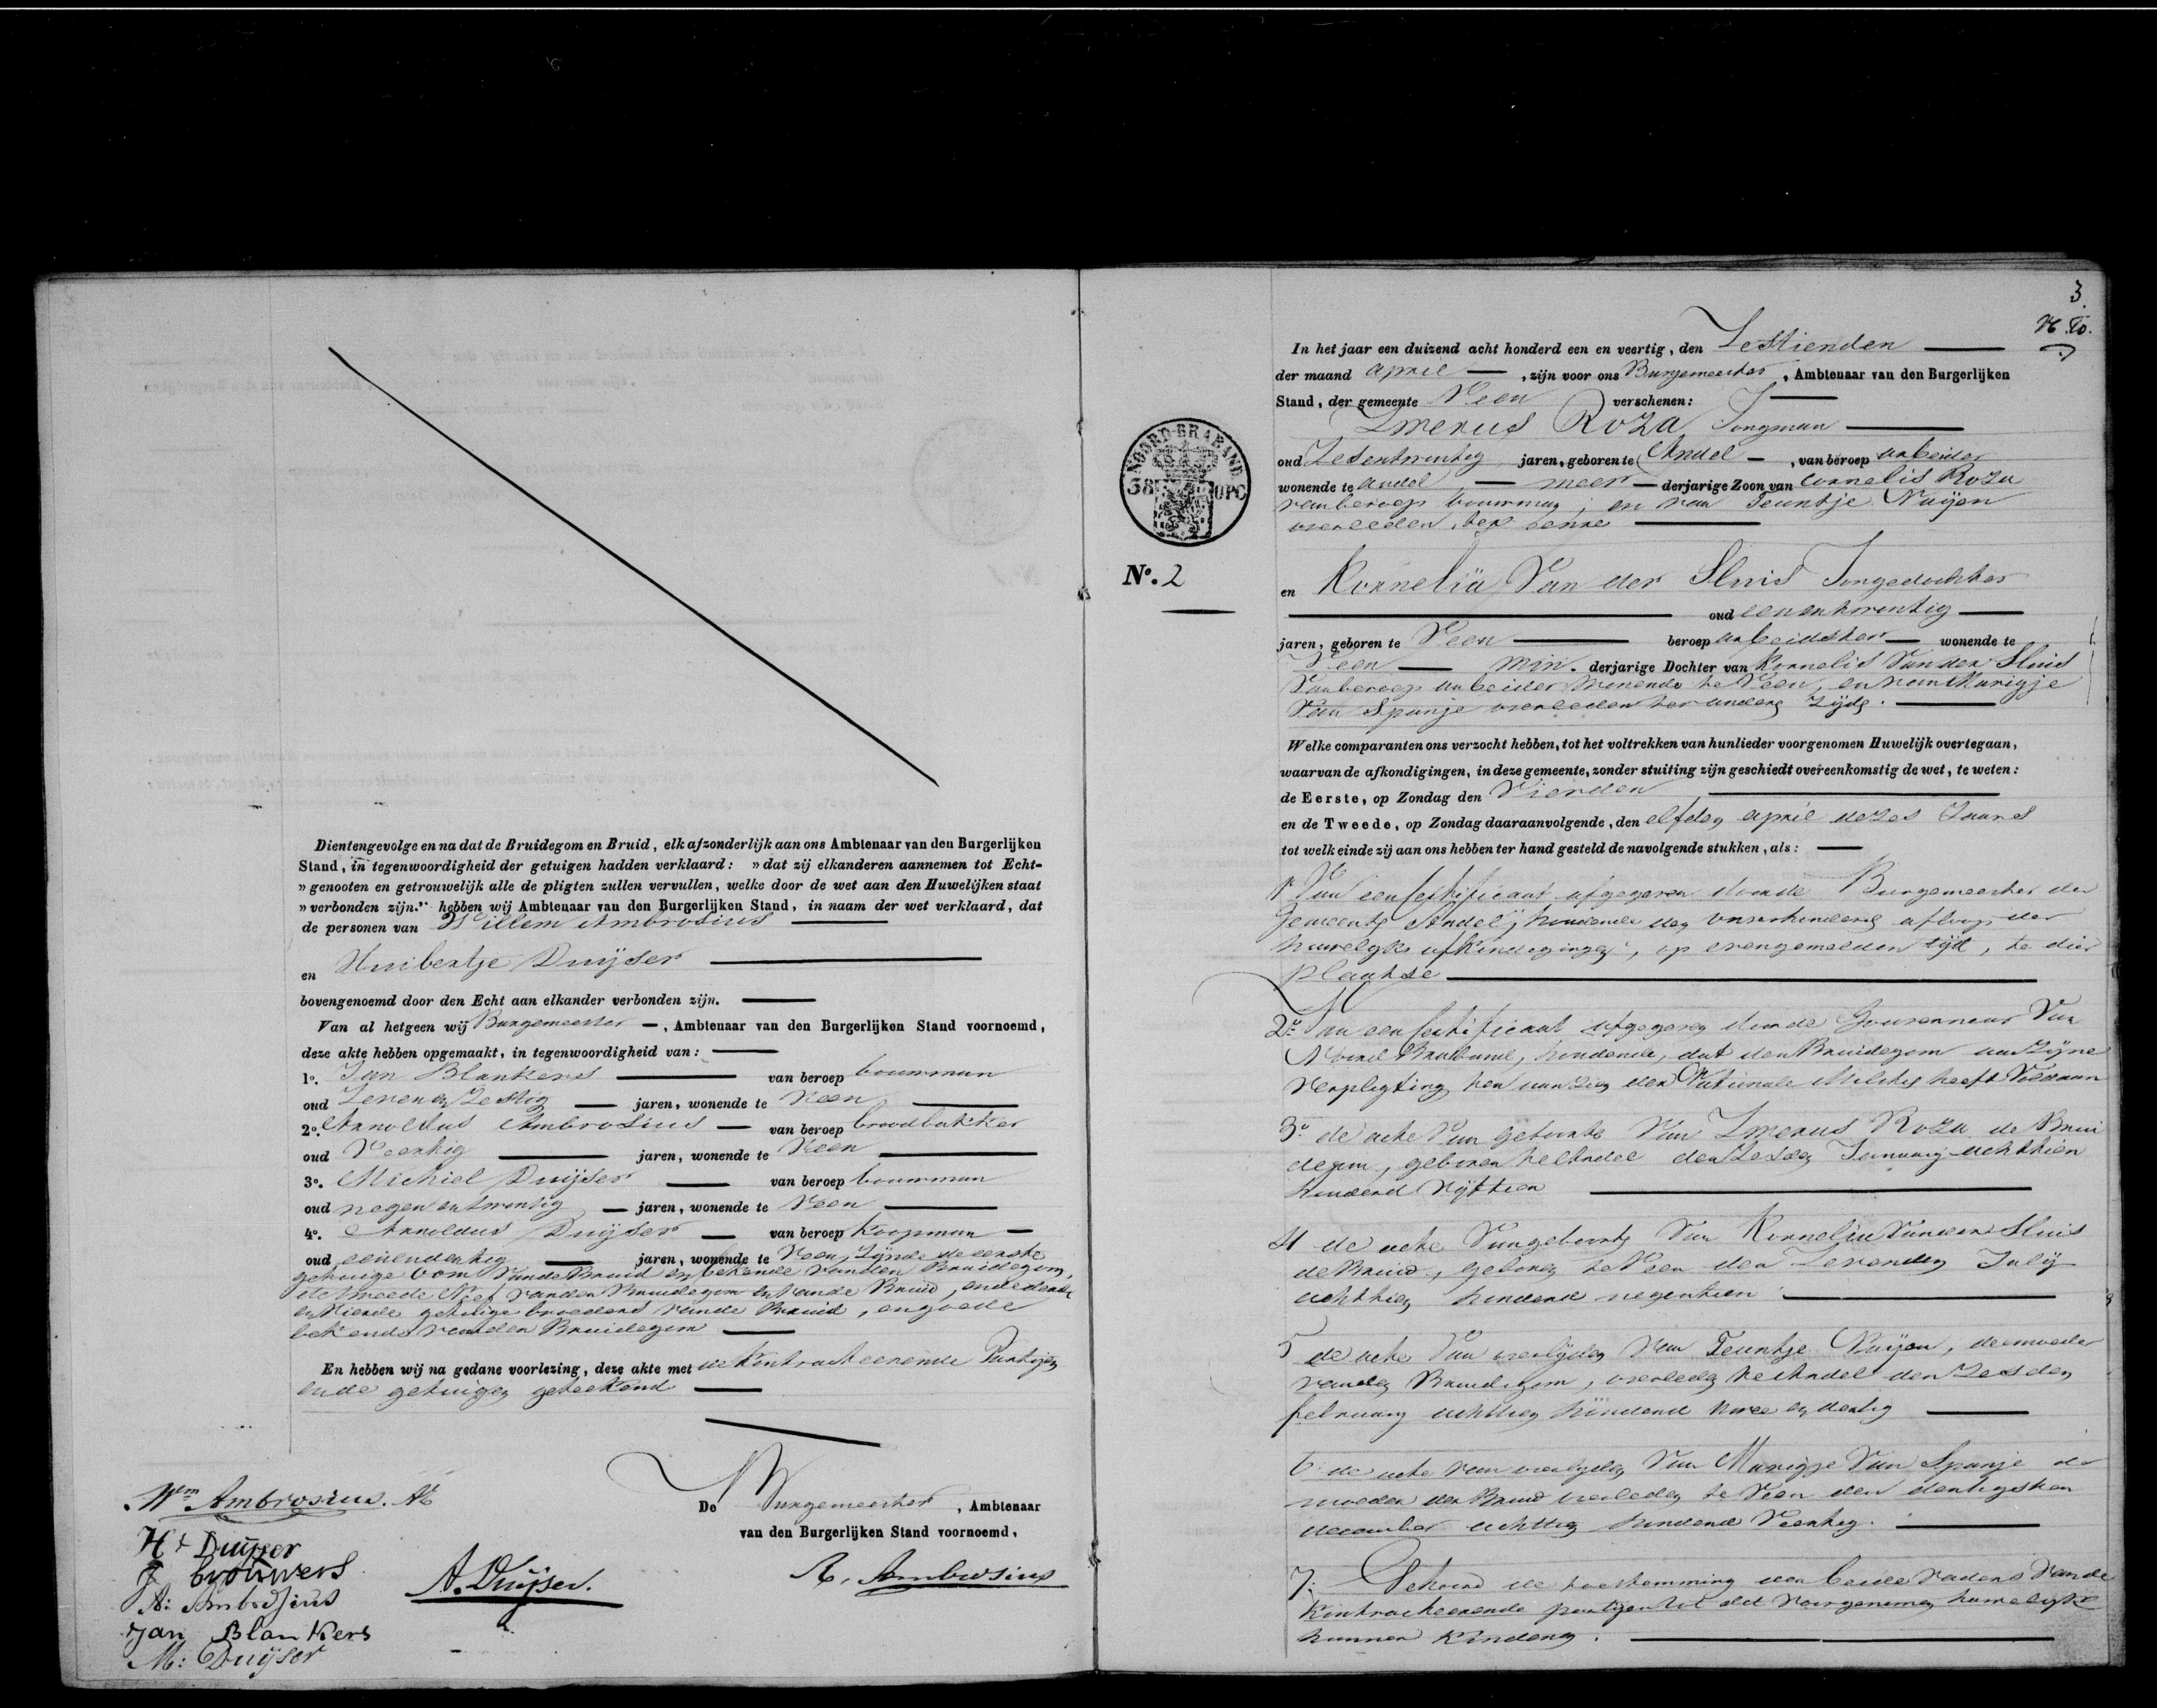 Dientengevolge en na dat de Bruidegom en Bruid, elk afzonderlijk aan ons Ambtenaar van den Burgerlijken
Stand, in tegenwoordigheid der getuigen hadden verklaard: »dat zij elkanderen aannemen tot Echt-
»genooten en getrouwelijk alle de pligten zullen vervullen, welke door de wet aan den Huwelijken staat
»verbonden zijn." hebben wij Ambtenaar van den Burgerlijken Stand, in naam der wet verklaard, dat
de personen van Willem Ambrosius
en Huibertje Duijser
bovengenoemd door den Echt aan elkander verbonden zijn.
Van al hetgeen wij Burgemeester, Ambtenaar van den Burgerlijken Stand voornoemd,
deze akte hebben opgemaakt, in tegenwoordigheid van:
1o. Jan Blankers van beroep bouwman
oud Zeven en Zestig jaren, wonende te Veen
2o. Arnoldus Ambrosius van beroep broodbakker
oud Veertig jaren, wonende te Veen
3o. Michiel Duijser van beroep bouwman
oud negen en twentig jaren, wonende te Veen
4o. Arnoldus Duijser van beroep Koopman
oud eenendertig jaren, wonende te Veen, Zijnde de eerste
getuige oom van de Bruid en bekende van den Bruidegom,
de tweede Neef van den Bruidegom en van de Bruid, en de derde
en Vierde getuige broeders van de Bruid, en goede
bekende van den Bruidegom
En hebben wij na gedane voorlezing, deze akte met de Kontracteerende Partijen
en de getuigen geteekend
De Burgemeester, Ambtenaar
van den Burgerlijken Stand voornoemd,
Wm Ambrosius. Az
Ht Duijser
J brouwers
A: Ambrosius
Jan Blankers
M: Duijser
A. Duijser.
A. Ambrosius
3.
NOORD-BRABAND
38 OPC
No. 2
In het jaar een duizend acht honderd een en veertig, den Zestienden
der maand april, zijn voor ons Burgemeester, Ambtenaar van den Burgerlijken
Stand, der gemeente Veen verschenen:
Imerus Roza Jongman
oud Zesentwentig jaren, geboren te Andel, van beroep arbeider
wonende te andel, meer derjarige Zoon van Cornelis Roza
van beroep bouwman, en van Teuntje Nuijen
overleden, ter eenre
en Kornelia Van der Sluis Jongedochter
oud eenentwentig
jaren, geboren te Veen beroep arbeidster wonende te
Veen min. derjarige Dochter van Kornelis Van der Sluis
Van beroep arbeider wonende te Veen, en van Marigje
Van Spanje overleden ter andere Zijde.
Welke comparanten ons verzocht hebben, tot het voltrekken van hunlieder voorgenomen Huwelijk overtegaan,
waarvan de afkondigingen, in deze gemeente, zonder stuiting zijn geschiedt overeenkomstig de wet, te weten:
de Eerste, op Zondag den Vierden
en de Tweede, op Zondag daaraanvolgende, den elfden april dezes Jaars
tot welk einde zij aan ons hebben ter hand gesteld de navolgende stukken, als:
1o Van een Certificaat afgegeven door de Burgemeester der
Gemeente Andel, houdende den onverhinderd afloop der
huwelijks afkondigingen, op evengemelden tijd, te dier
plaatse
2o Van een Certificaat afgegeven door de Gouverneur Van
Noord Braband, houdende, dat den Bruidegom aan Zijne
verpligting ten aanzien der Nationale Militie heeft Voldaan
3o de acte Van geboorte Van Imerus Roza de Brui
degom, geboren te Andel den Zesden Januarij achttien
honderd Vijftien
4 de acte Van geboorte Van Kornelia Van der Sluis
de Bruid, geboren te Veen den Zevenden Julij
achttien honderd negentien
5 de acte Van overlijden Van Teuntje Nuijen, de moeder
van den Bruidegom, overleden te Andel den Zesden
februarij achttien honderd twee en dertig
6 de acte van overlijden Van Marigje Van Spanje de
moeder der Bruid overleden te Veen den dertigsten
december achttien honderd Veertig.
7. Gehoord de toestemming der beide Vaders Van de
Kontracteerende partijen tot dit voorgenomen huwelijk
hunner Kinderen.